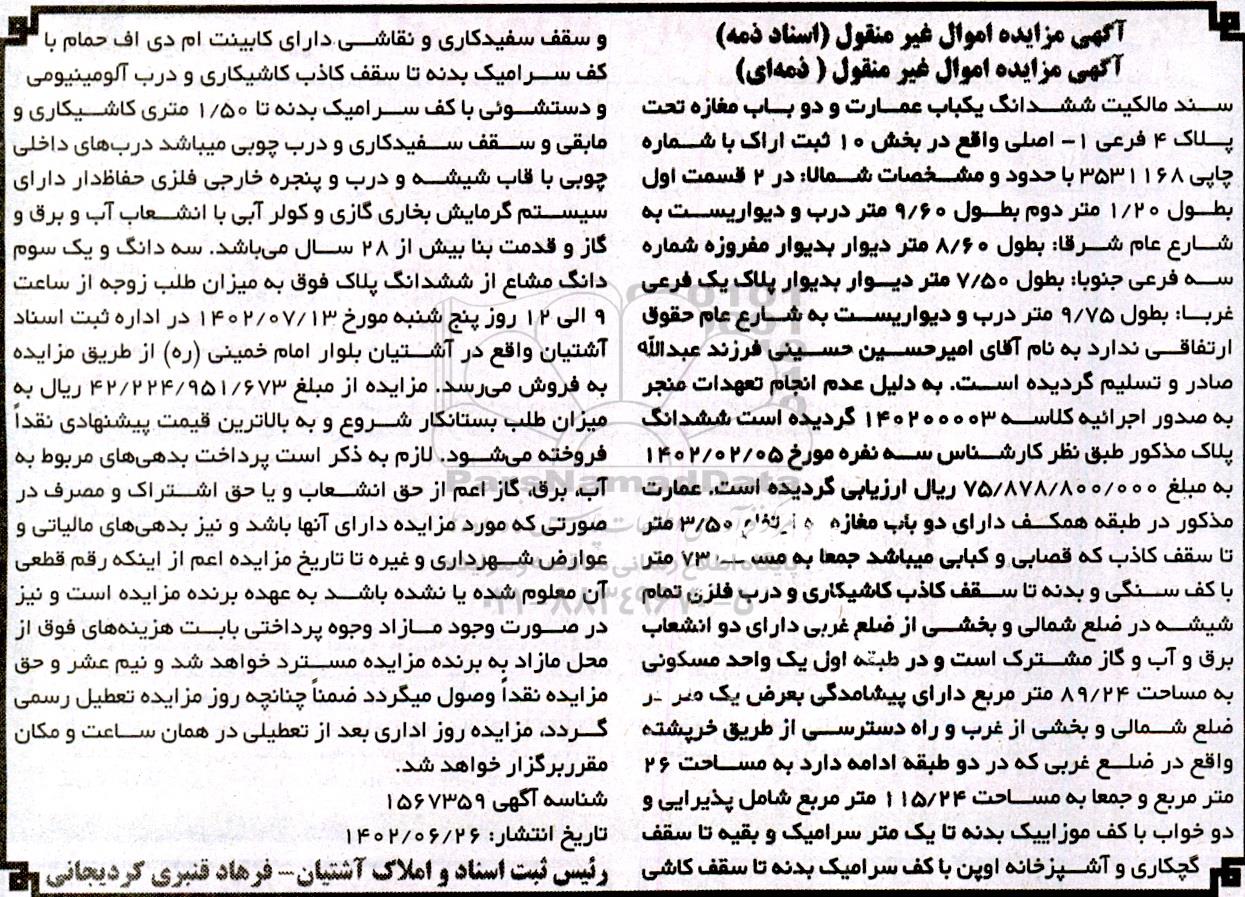 آگهی مزایده اموال غیر منقول (اسناد ذمه)
آگهی مزایده اموال غیر منقول ( ذمه‌ای)
سند مالکیت ششدانگ یکباب عمارت و دو باب مغازه تحت
پلاک ۴ فرعی ۱- اصلی واقع در بخش ۱۰ ثبت اراک با شماره
چاپی ۳۵۳۱۱۶۸ با حدود و مشخصات شمالا: در ۲ قسمت اول
بطول ۱/۲۰ متر دوم بطول ۹/۶۰ متر درب و دیواریست به
شارع عام شرقا: بطول ۸/۶۰ متر دیوار بدیوار مفروزه شماره
سه فرعی جنوبا: بطول ۷/۵۰ متر دیوار بدیوار پلاک یک فرعی
غربا: بطول ۹/۷۵ متر درب و دیواریست به شارع عام حقوق
ارتفاقی ندارد به نام آقای امیرحسین حسینی فرزند عبدالله
صادر و تسلیم گردیده است. به دلیل عدم انجام تعهدات منجر
به صدور اجرائیه کلاسه ۱۴۰۲۰۰۰۰۳ گردیده است ششدانگ
پلاک مذکور طبق نظر کارشناس سه نفره مورخ ۱۴۰۲/۰۲/۰۵
به مبلغ ۷۵/۸۷۸/۸۰۰/۰۰۰ ریال ارزیابی گردیده است. عمارت
مذکور در طبقه همکف دارای دو باب مغازه ارتفاع ۳/۵۰ متر
تا سقف کاذب که قصابی و کبابی میباشد جمعا به ۷۳ متر
با کف سنگی و بدنه تا سقف کاذب کاشیکاری و درب فلزی تمام
شیشه در ضلع شمالی و بخشی از ضلع غربی دارای دو انشعاب
برق و آب و گاز مشترک است و در طبقه اول یک واحد مسکونی
به مساحت ۸۹/۲۴ متر مربع دارای پیشامدگی بعرض یک متر در
ضلع شمالی و بخشی از غرب و راه دسترسی از طریق خرپشته
واقع در ضلع غربی که در دو طبقه ادامه دارد به مساحت ۲۶
متر مربع و جمعا به مساحت ۱۱۵/۲۴ متر مربع شامل پذیرایی و
دو خواب با کف موزاییک بدنه تا یک متر سرامیک و بقیه تا سقف
گچکاری و آشپزخانه اوپن با کف سرامیک بدنه تا سقف کاشی
و سقف سفیدکاری و نقاشی دارای کابینت ام دی اف حمام با
کف سرامیک بدنه تا سقف کاذب کاشیکاری و درب آلومینیومی
و دستشوئی با کف سرامیک بدنه تا ۱/۵۰ متری کاشیکاری و
مابقی و سقف سفیدکاری و درب چوبی میباشد درب‌های داخلی
چوبی با قاب شیشه و درب و پنجره خارجی فلزی حفاظدار دارای
سیستم گرمایش بخاری گازی و کولر آبی با انشعاب آب و برق و
گاز و قدمت بنا بیش از ۲۸ سال می‌باشد. سه دانگ و یک سوم
دانگ مشاع از ششدانگ پلاک فوق به میزان طلب زوجه از ساعت
۹ الی ۱۲ روز پنج شنبه مورخ ۱۴۰۲/۰۷/۱۳ در اداره ثبت اسناد
آشتیان واقع در آشتیان بلوار امام خمینی (ره) از طریق مزایده
به فروش می‌رسد. مزایده از مبلغ ۴۲/۲۲۴/۹۵۱/۶۷۳ ریال به
میزان طلب بستانکار شروع و به بالاترین قیمت پیشنهادی نقداً
فروخته می‌شود. لازم به ذکر است پرداخت بدهی‌های مربوط به
آب، برق، گاز اعم از حق انشعاب و یا حق اشتراک و مصرف در
صورتی که مورد مزایده دارای آنها باشد و نیز بدهی‌های مالیاتی و
عوارض شهرداری و غیره تا تاریخ مزایده اعم از اینکه رقم قطعی
آن معلوم شده یا نشده باشد به عهده برنده مزایده است و نیز
در صورت وجود مازاد وجوه پرداختی بابت هزینه‌های فوق از
محل مازاد به برنده مزایده مسترد خواهد شد و نیم عشر و حق
مزایده نقداً وصول میگردد ضمناً چنانچه روز مزایده تعطیل رسمی
گردد، مزایده روز اداری بعد از تعطیلی در همان ساعت و مکان
مقرربرگزار خواهد شد.
شناسه آگهی ۱۵۶۷۳۵۹
تاریخ انتشار: ۱۴۰۲/۰۶/۲۶
رئیس ثبت اسناد و املاک آشتیان- فرهاد قنبری کردیجانی
ParsNamadData